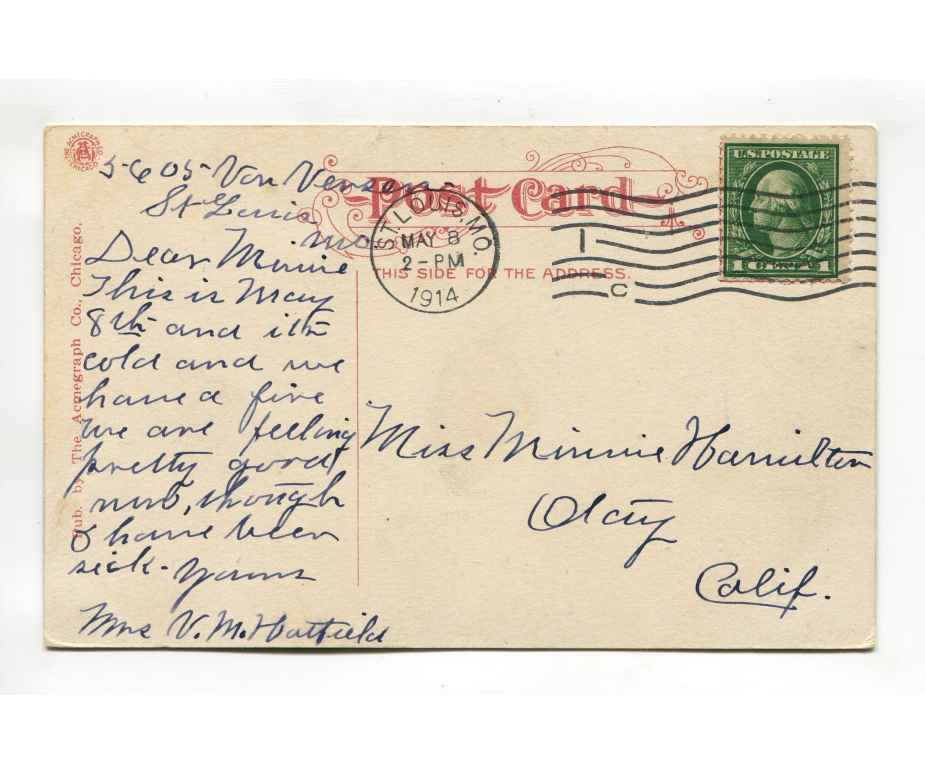 THE ACMEGRAPH CO. CHICAGO
5605 Von Versen
St Louis
Mo
Dear Minnie
This is May
8th and its
cold and we
have a fire
we are feeling
pretty good
now, though
I have been
sick. Yours
Mrs V. M. Hatfield
Pub. by The Acmegraph Co., Chicago.
Post Card
THIS SIDE FOR THE ADDRESS.
ST. LOUIS, MO.
MAY 8
2-PM
1914
1
C
U.S. POSTAGE
1 CENT 1
Miss Minnie Hamilton
Otay
Calif.